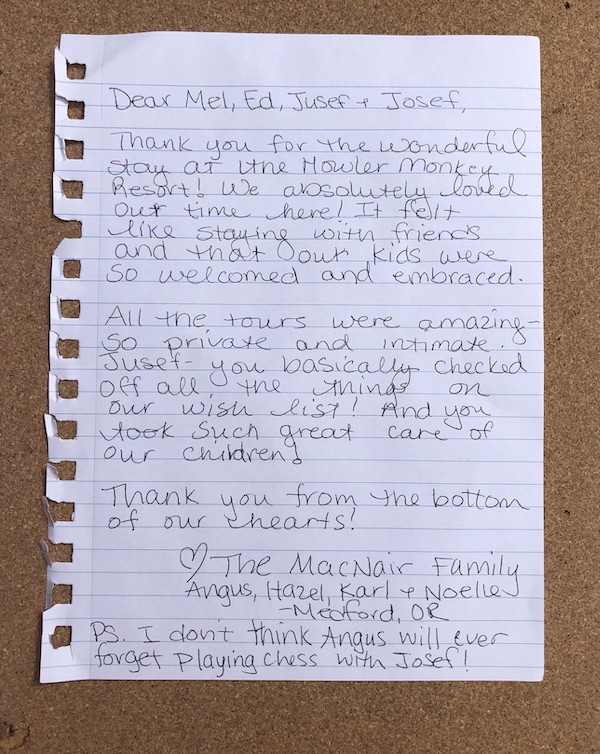 Dear Mel, Ed, Jusef + Josef,
Thank you for the wonderful
stay at the Howler Monkey
Resort! We absolutely loved
our time here! It felt
like staying with friends
and that our kids were
so welcomed and embraced.
All the tours were amazing-
so private and intimate.
Jusef- you basically checked
off all the things on
our wish list! And you
took such great care of
our children!
Thank you from the bottom
of our hearts!
♡ The MacNair Family
Angus, Hazel, Karl + Noelle
-Medford, OR
PS. I don't think Angus will ever
forget playing chess with Josef!